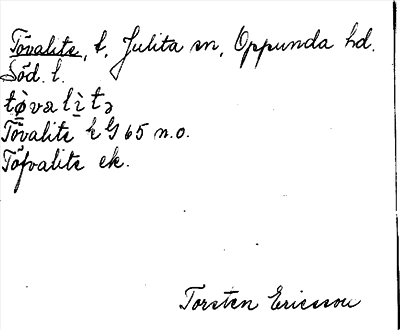 Tövalite, t., Julita sn, Oppunda hd.
Söd. l.
tø̀valìtə
Tövalite k G 65 n.o.
Töfvalite ek.
Torsten Ericsson